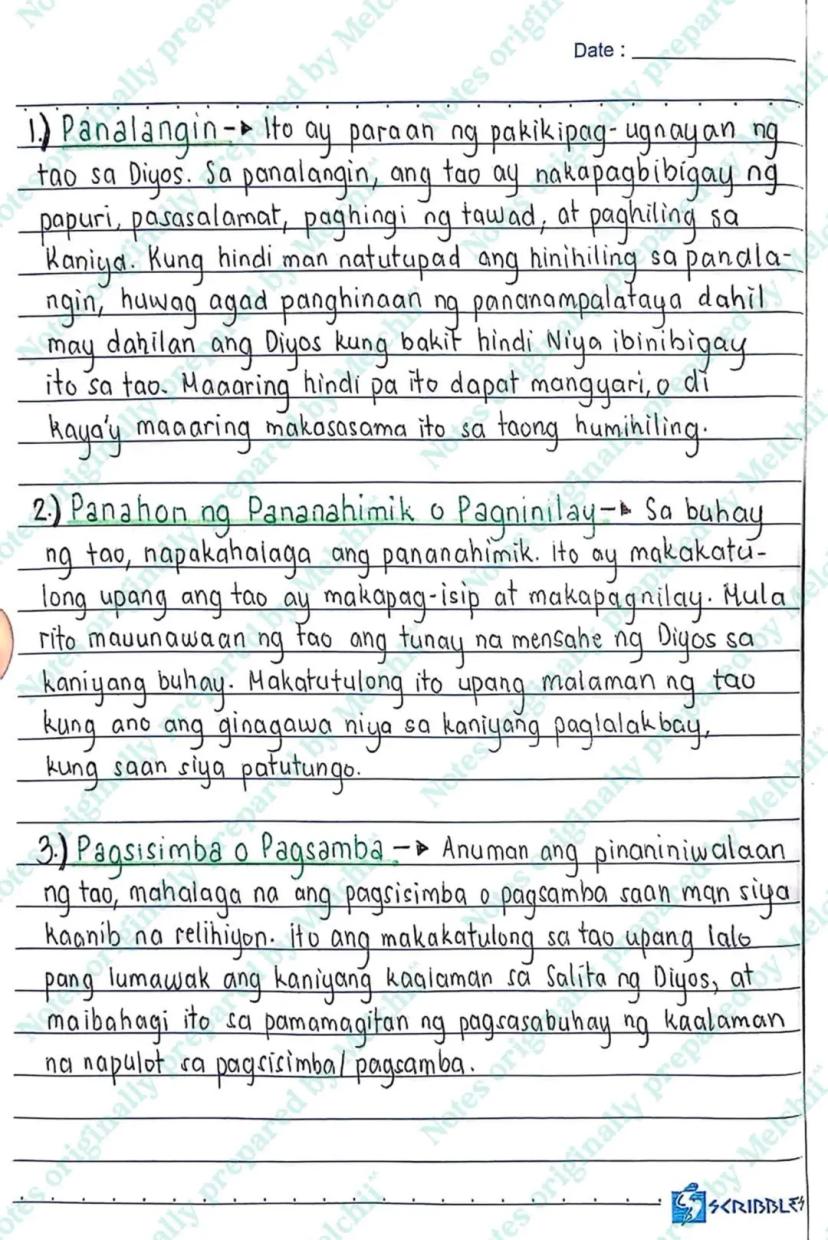 Date :
1.) Panalangin → Ito ay paraan ng pakikipag-ugnayan ng
tao sa Diyos. Sa panalangin, ang tao ay nakapagbibigay ng
papuri, pasasalamat, paghingi ng tawad, at paghiling sa
Kaniya. Kung hindi man natutupad ang hinihiling sa panala-
ngin, huwag agad panghinaan ng pananampalataya dahil
may dahilan ang Diyos kung bakit hindi Niya ibinibigay
ito sa tao. Maaaring hindi pa ito dapat mangyari, o di
kaya'y maaaring makasasama ito sa taong humihiling.
2.) Panahon ng Pananahimik o Pagninilay → Sa buhay
ng tao, napakahalaga ang pananahimik. ito ay makakatu-
long upang ang tao ay makapag-isip at makapagnilay. Mula
rito mauunawaan ng tao ang tunay na mensahe ng Diyos sa
kaniyang buhay. Makatutulong ito upang malaman ng tao
kung ano ang ginagawa niya sa kaniyang paglalakbay,
kung saan siya patutungo.
3.) Pagsisimba o Pagsamba → Anuman ang pinaniniwalaan
ng tao, mahalaga na ang pagsisimba o pagsamba saan man siya
kaanib na relihiyon. ito ang makakatulong sa tao upang lalo
pang lumawak ang kaniyang kaalaman sa Salita ng Diyos, at
maibahagi ito sa pamamagitan ng pagsasabuhay ng kaalaman
na napulot sa pagsisimba/ pagsamba.
SCRIBBLES
Notes originally prepared by Melchii